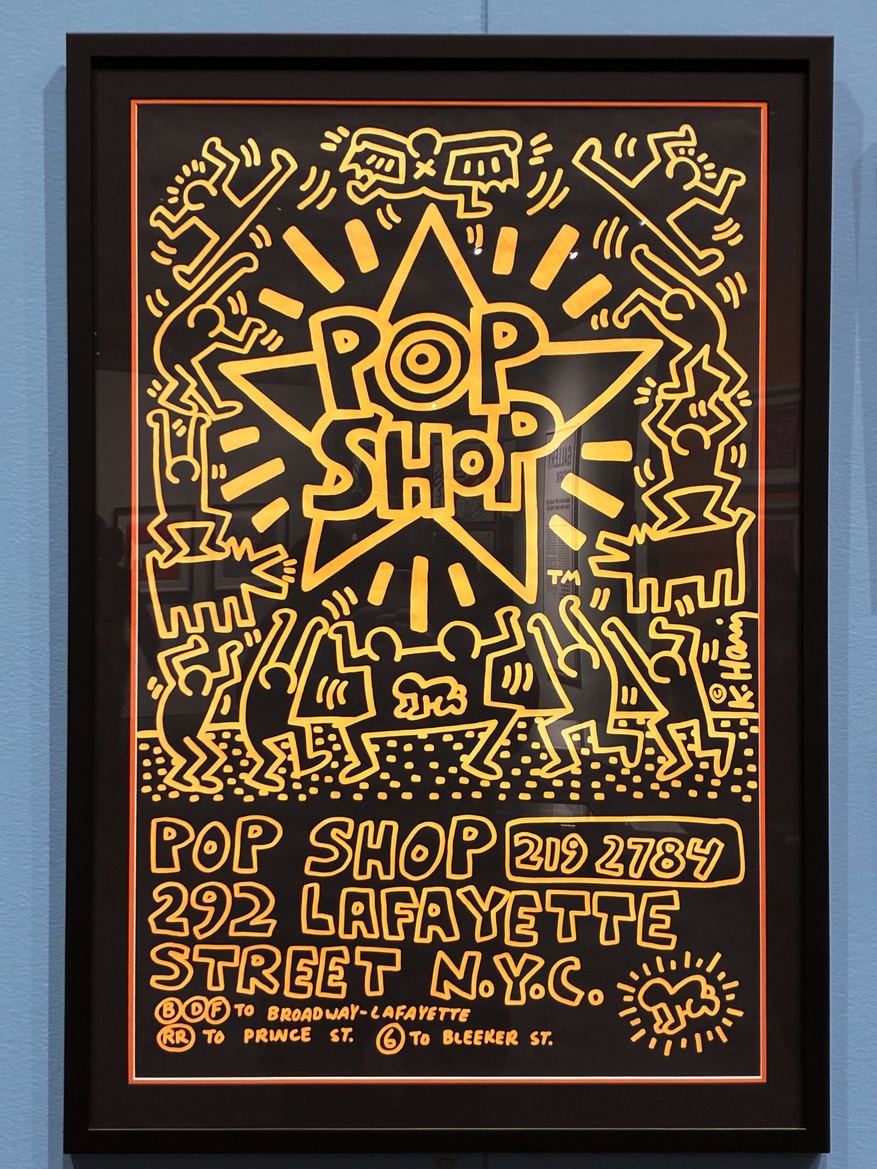 POP
SHOP
TM
© K. Haring
POP SHOP 219 2784
292 LAFAYETTE
STREET N.Y.C.
B D F TO BROADWAY-LAFAYETTE
RR TO PRINCE ST. 6 TO BLEEKER ST.